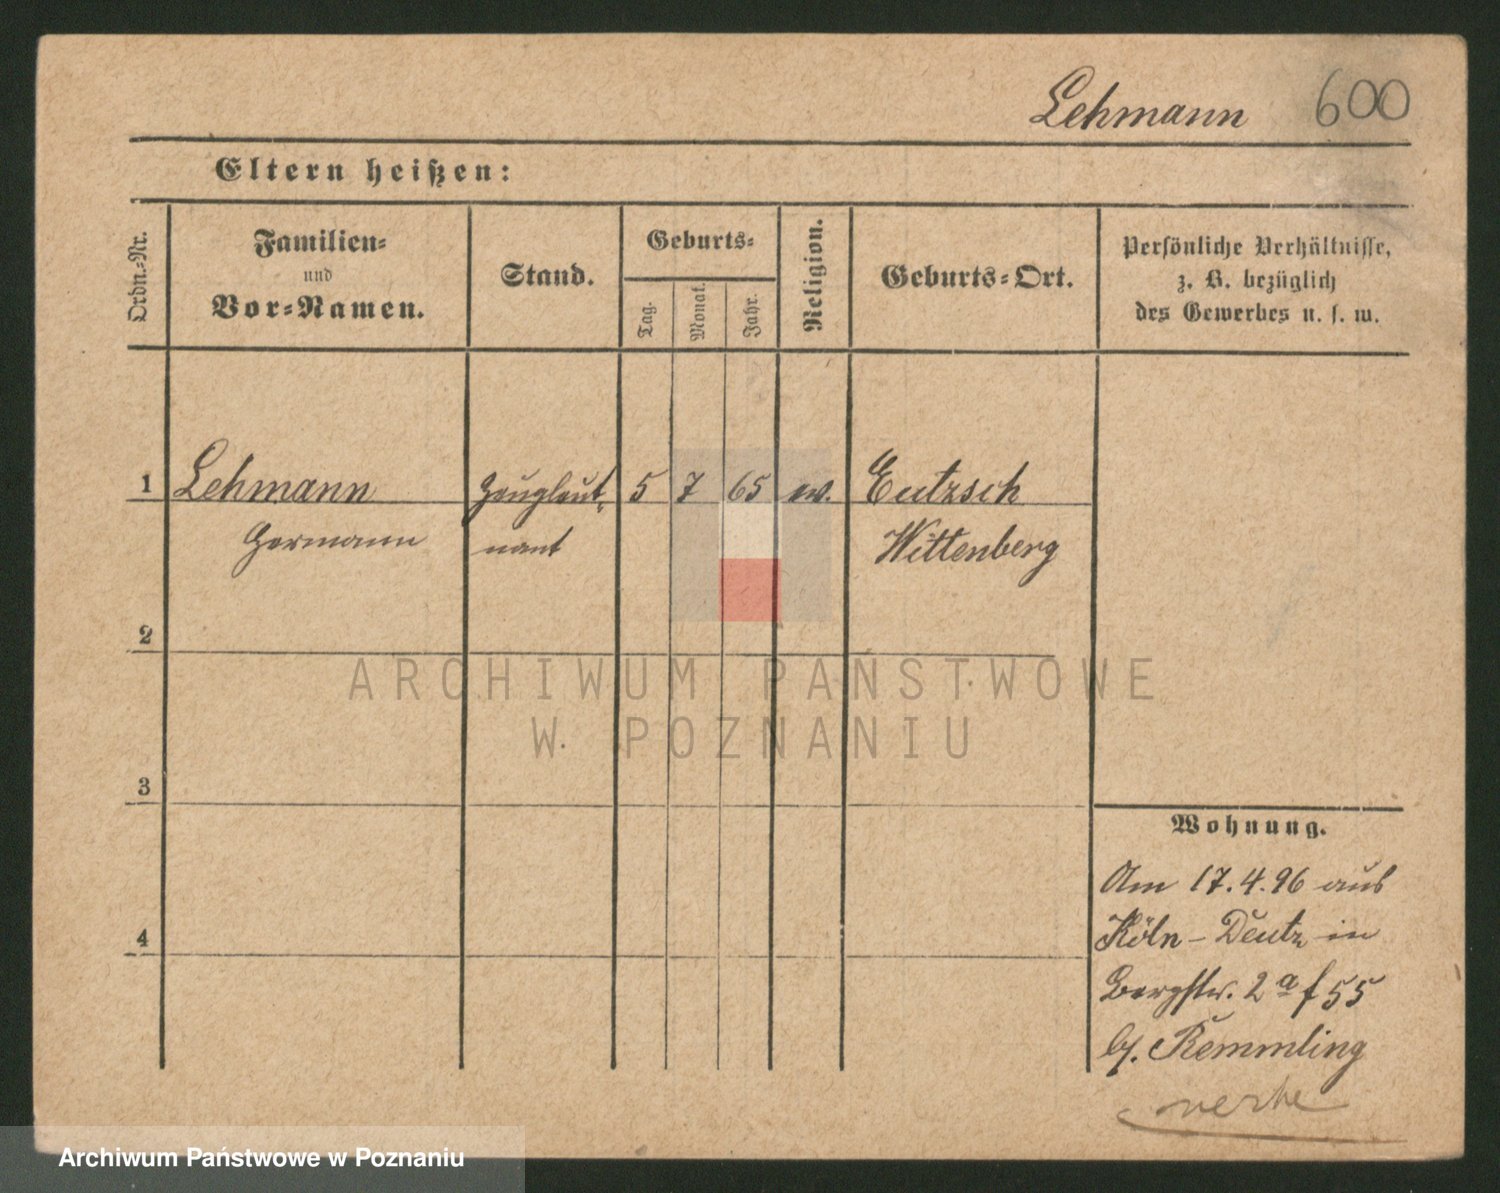 Lehmann 600
Eltern heißen:
Ordn.-Nr.
Familien-
und
Vor-Namen.
Stand.
Geburts-
Tag.
Monat.
Jahr.
Religion.
Geburts-Ort.
Persönliche Verhältnisse,
z. B. bezüglich
des Gewerbes u. s. w.
1 Lehmann Zeugleut- 5 7 65 ev. Eutzsch
Hermann nant Wittenberg
2
3
4
Wohnung.
Am 17.4.96 aus
Köln-Deutz in
Bergstr. 2a f 55
b/. Remmling
ARCHIWUM PAŃSTWOWE
W POZNANIU
Archiwum Państwowe w Poznaniu